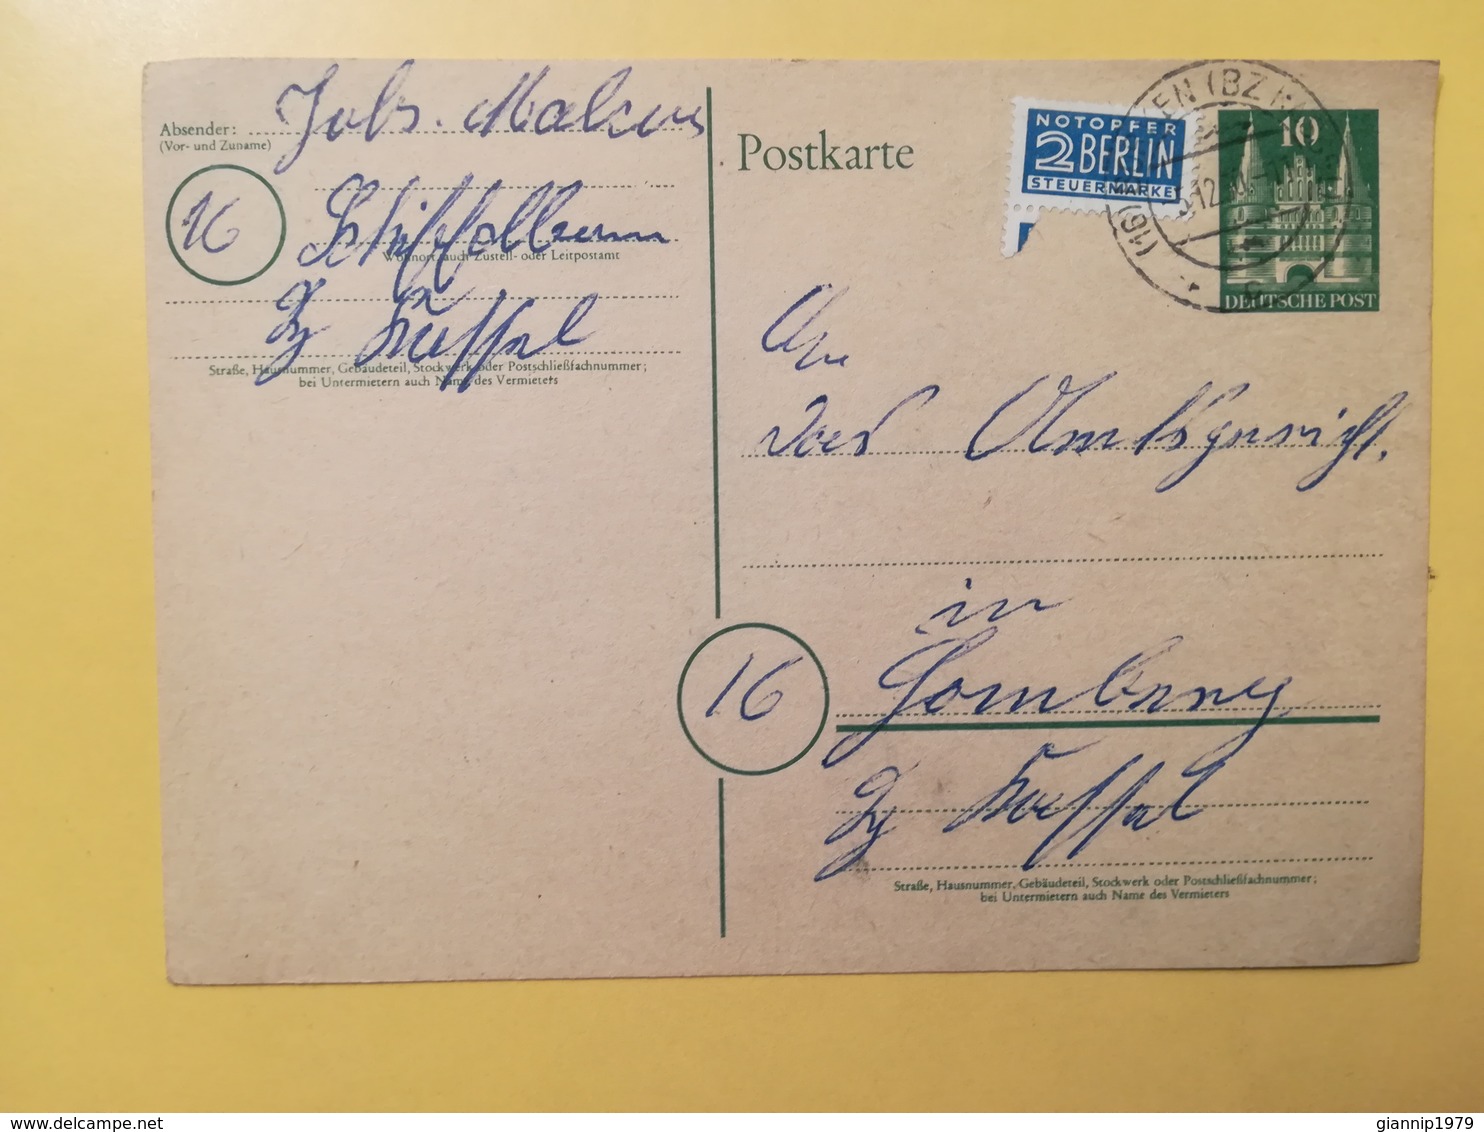 Absender: Johs. Malkus
(Vor- und Zuname)
16
Wohnort, auch Zustell- oder Leitpostamt
Bz Kassel
Straße, Hausnummer, Gebäudeteil, Stockwerk oder Postschließfachnummer;
bei Untermietern auch Name des Vermieters
Postkarte
NOTOPFER
2 BERLIN
STEUERMARKE
10
DEUTSCHE POST
An
das Amtsgericht,
in
16
Homberg
Bz Kassel
Straße, Hausnummer, Gebäudeteil, Stockwerk oder Postschließfachnummer;
bei Untermietern auch Name des Vermieters
giannip1979